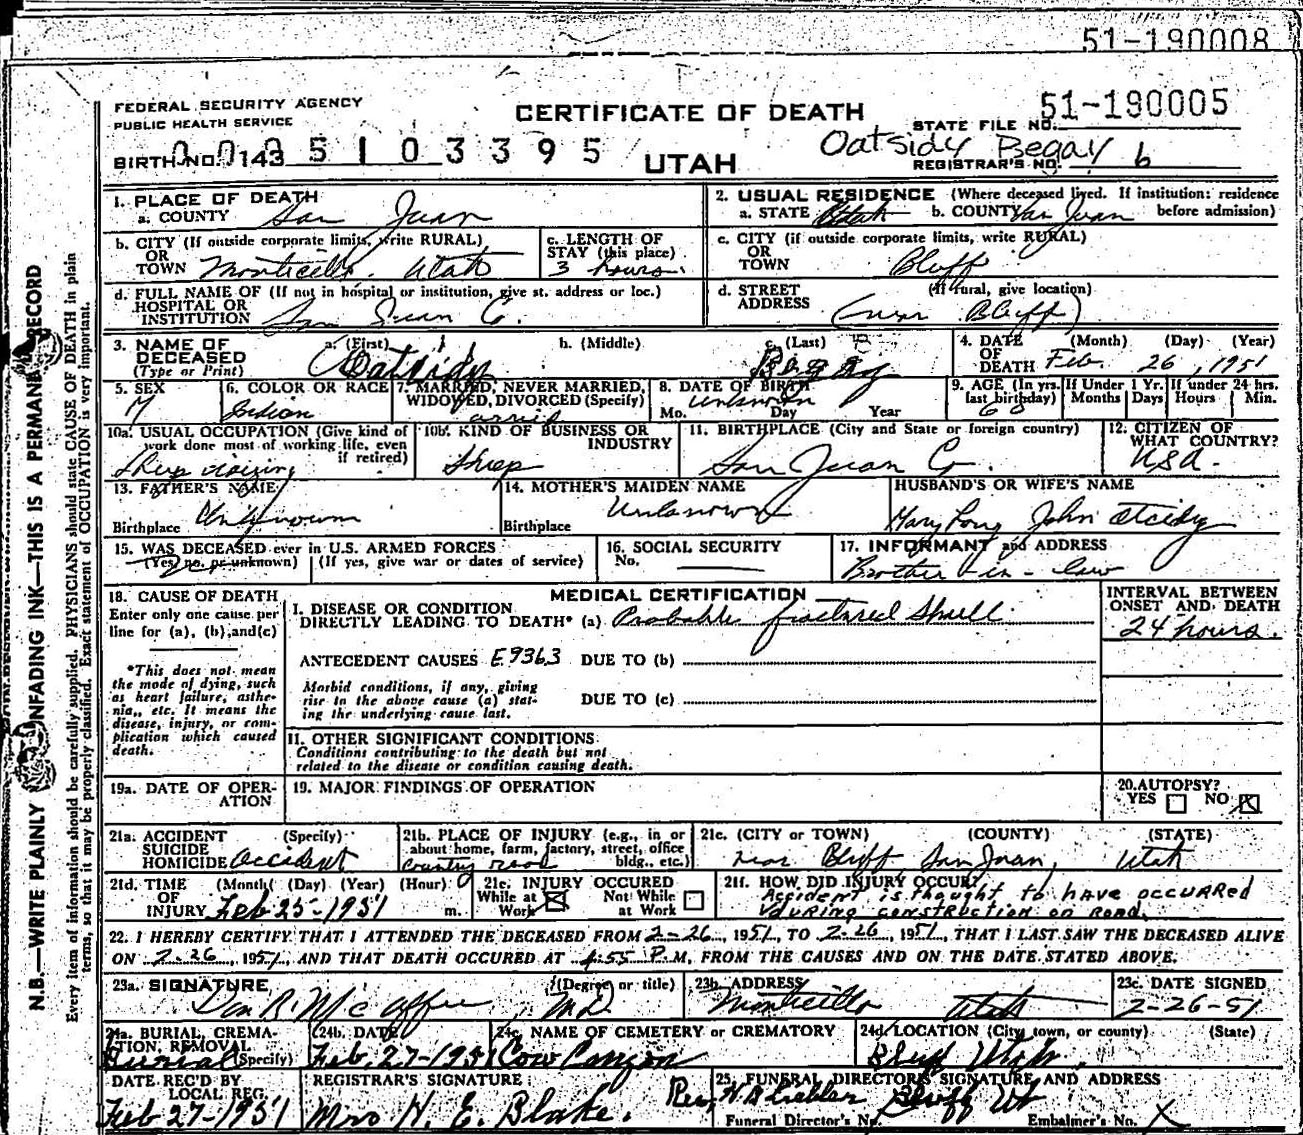 51-190008
FEDERAL SECURITY AGENCY
PUBLIC HEALTH SERVICE
CERTIFICATE OF DEATH
51-190005
STATE FILE NO.
BIRTH NO. 143
005103395
UTAH
Oatsidy Begay
REGISTRAR'S NO. 6
1. PLACE OF DEATH
a. COUNTY San Juan
2. USUAL RESIDENCE (Where deceased lived. If institution: residence before admission)
a. STATE Utah b. COUNTY San Juan
b. CITY (If outside corporate limits, write RURAL)
OR
TOWN Monticello, Utah
c. LENGTH OF STAY (this place)
3 hours.
c. CITY (if outside corporate limits, write RURAL)
OR
TOWN Bluff
d. FULL NAME OF (If not in hospital or institution, give st. address or loc.)
HOSPITAL OR
INSTITUTION San Juan Co.
d. STREET ADDRESS (If rural, give location)
(near Bluff)
3. NAME OF DECEASED (Type or Print)
a. (First) b. (Middle) c. (Last)
Oatsidy Begay
4. DATE OF DEATH (Month) (Day) (Year)
Feb. 26, 1951
5. SEX
M
6. COLOR OR RACE
Indian
7. MARRIED, NEVER MARRIED, WIDOWED, DIVORCED (Specify)
8. DATE OF BIRTH
Unknown
Mo. Day Year
9. AGE (In yrs. last birthday)
If Under 1 Yr. Months Days
If under 24 hrs. Hours Min.
10a. USUAL OCCUPATION (Give kind of work done most of working life, even if retired)
Sheep raising
10b. KIND OF BUSINESS OR INDUSTRY
Sheep
11. BIRTHPLACE (City and State or foreign country)
San Juan Co.
12. CITIZEN OF WHAT COUNTRY?
USA.
13. FATHER'S NAME
Unknown
Birthplace
14. MOTHER'S MAIDEN NAME
Unknown
Birthplace
HUSBAND'S OR WIFE'S NAME
Mary Long John Atcidy
15. WAS DECEASED ever in U.S. ARMED FORCES
(Yes, no, or unknown) (If yes, give war or dates of service)
16. SOCIAL SECURITY No.
17. INFORMANT and ADDRESS
Brother-in-law
18. CAUSE OF DEATH
Enter only one cause per line for (a), (b), and (c)
MEDICAL CERTIFICATION
I. DISEASE OR CONDITION
DIRECTLY LEADING TO DEATH* (a) Probable fractured Skull
INTERVAL BETWEEN ONSET AND DEATH
24 hours.
*This does not mean the mode of dying, such as heart failure, asthenia, etc. It means the disease, injury, or complication which caused death.
ANTECEDENT CAUSES E9363 DUE TO (b)
Morbid conditions, if any, giving rise to the above cause (a) stating the underlying cause last.
DUE TO (c)
II. OTHER SIGNIFICANT CONDITIONS:
Conditions contributing to the death but not related to the disease or condition causing death.
19a. DATE OF OPERATION
19. MAJOR FINDINGS OF OPERATION
20. AUTOPSY?
YES NO X
21a. ACCIDENT SUICIDE HOMICIDE (Specify)
Accident
21b. PLACE OF INJURY (e.g., in or about home, farm, factory, street, office bldg., etc.)
Country road
21c. (CITY or TOWN) (COUNTY) (STATE)
near Bluff San Juan, Utah
21d. TIME OF INJURY (Month) (Day) (Year) (Hour)
Feb 25-1951 m.
21e. INJURY OCCURED
While at Work X Not While at Work
21f. HOW DID INJURY OCCUR?
Accident is thought to have occurred
during construction on road.
22. I HEREBY CERTIFY THAT I ATTENDED THE DECEASED FROM 2-26, 1951, TO 2-26, 1951, THAT I LAST SAW THE DECEASED ALIVE
ON 2-26, 1951, AND THAT DEATH OCCURED AT 4:55 P.M, FROM THE CAUSES AND ON THE DATE STATED ABOVE.
23a. SIGNATURE (Degree or title)
Don R. McAffee MD.
23b. ADDRESS
Monticello Utah
23c. DATE SIGNED
2-26-51
24a. BURIAL, CREMATION, REMOVAL (Specify)
Burial
24b. DATE
Feb. 27-1951
24c. NAME OF CEMETERY or CREMATORY
Cow Canyon
24d. LOCATION (City, town, or county) (State)
Bluff Utah.
DATE REC'D BY LOCAL REG.
Feb 27-1951
REGISTRAR'S SIGNATURE
Mrs H. E. Blake.
25. FUNERAL DIRECTOR'S SIGNATURE AND ADDRESS
Rev. H. B. Liebler Bluff Ut
Funeral Director's No. Embalmer's No. X
N.B.—WRITE PLAINLY UNFADING INK—THIS IS A PERMANENT RECORD
Every item of information should be carefully supplied. PHYSICIANS should state CAUSE OF DEATH in plain
terms, so that it may be properly classified. Exact statement of OCCUPATION is very important.